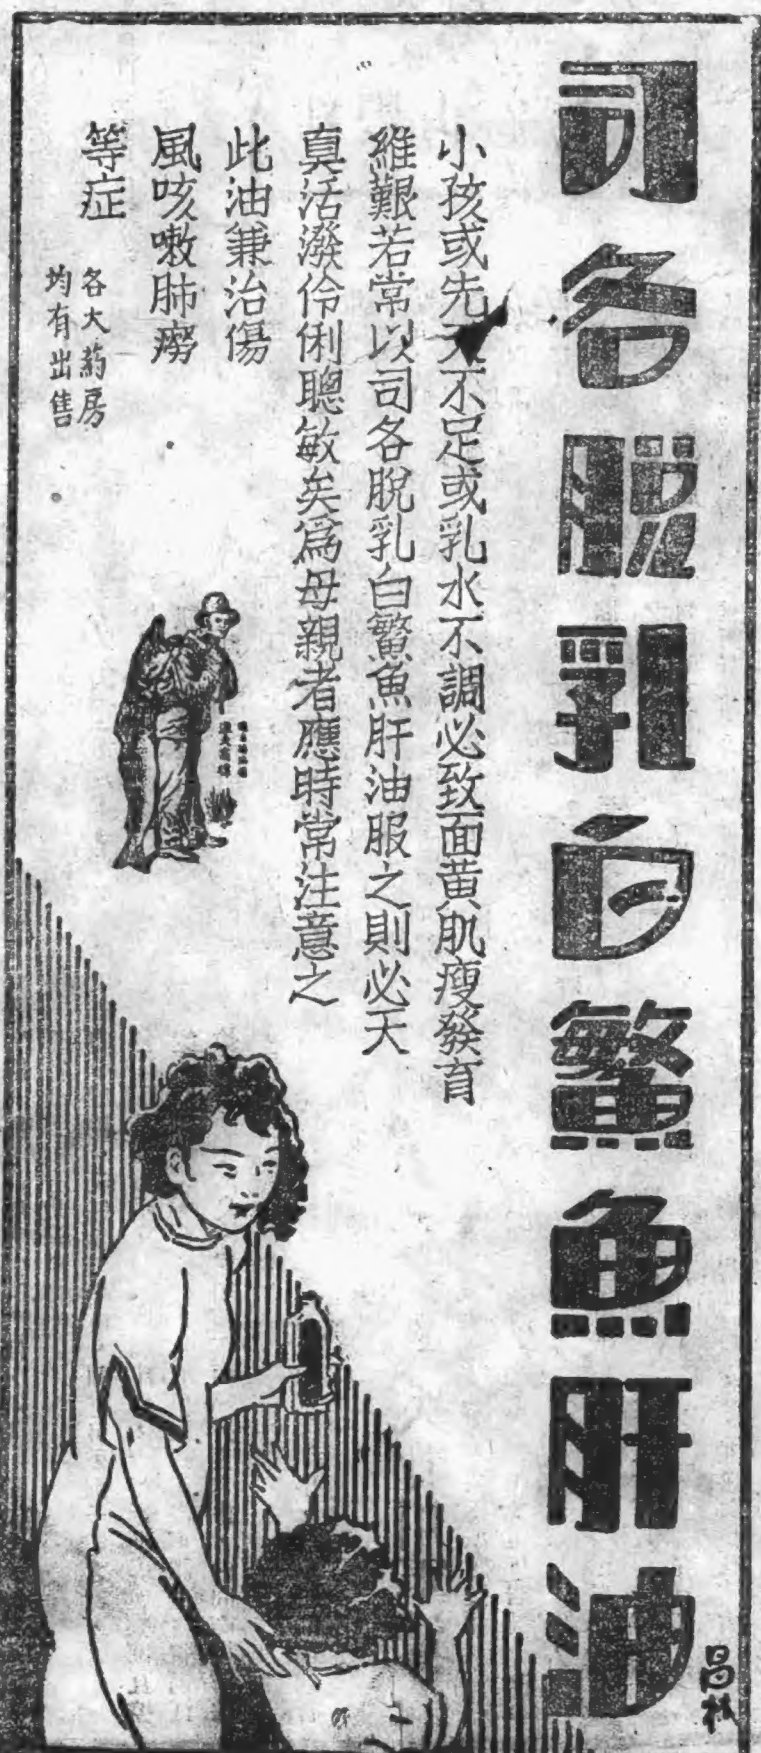 司各脫乳白鰵魚肝油
小孩或先天不足或乳水不調必致面黃肌瘦發育
維艱若常以司各脫乳白鰵魚肝油服之則必天
真活潑伶俐聰敏矣為母親者應時常注意之
此油兼治傷
風咳嗽肺癆
等症
各大葯房
均有出售